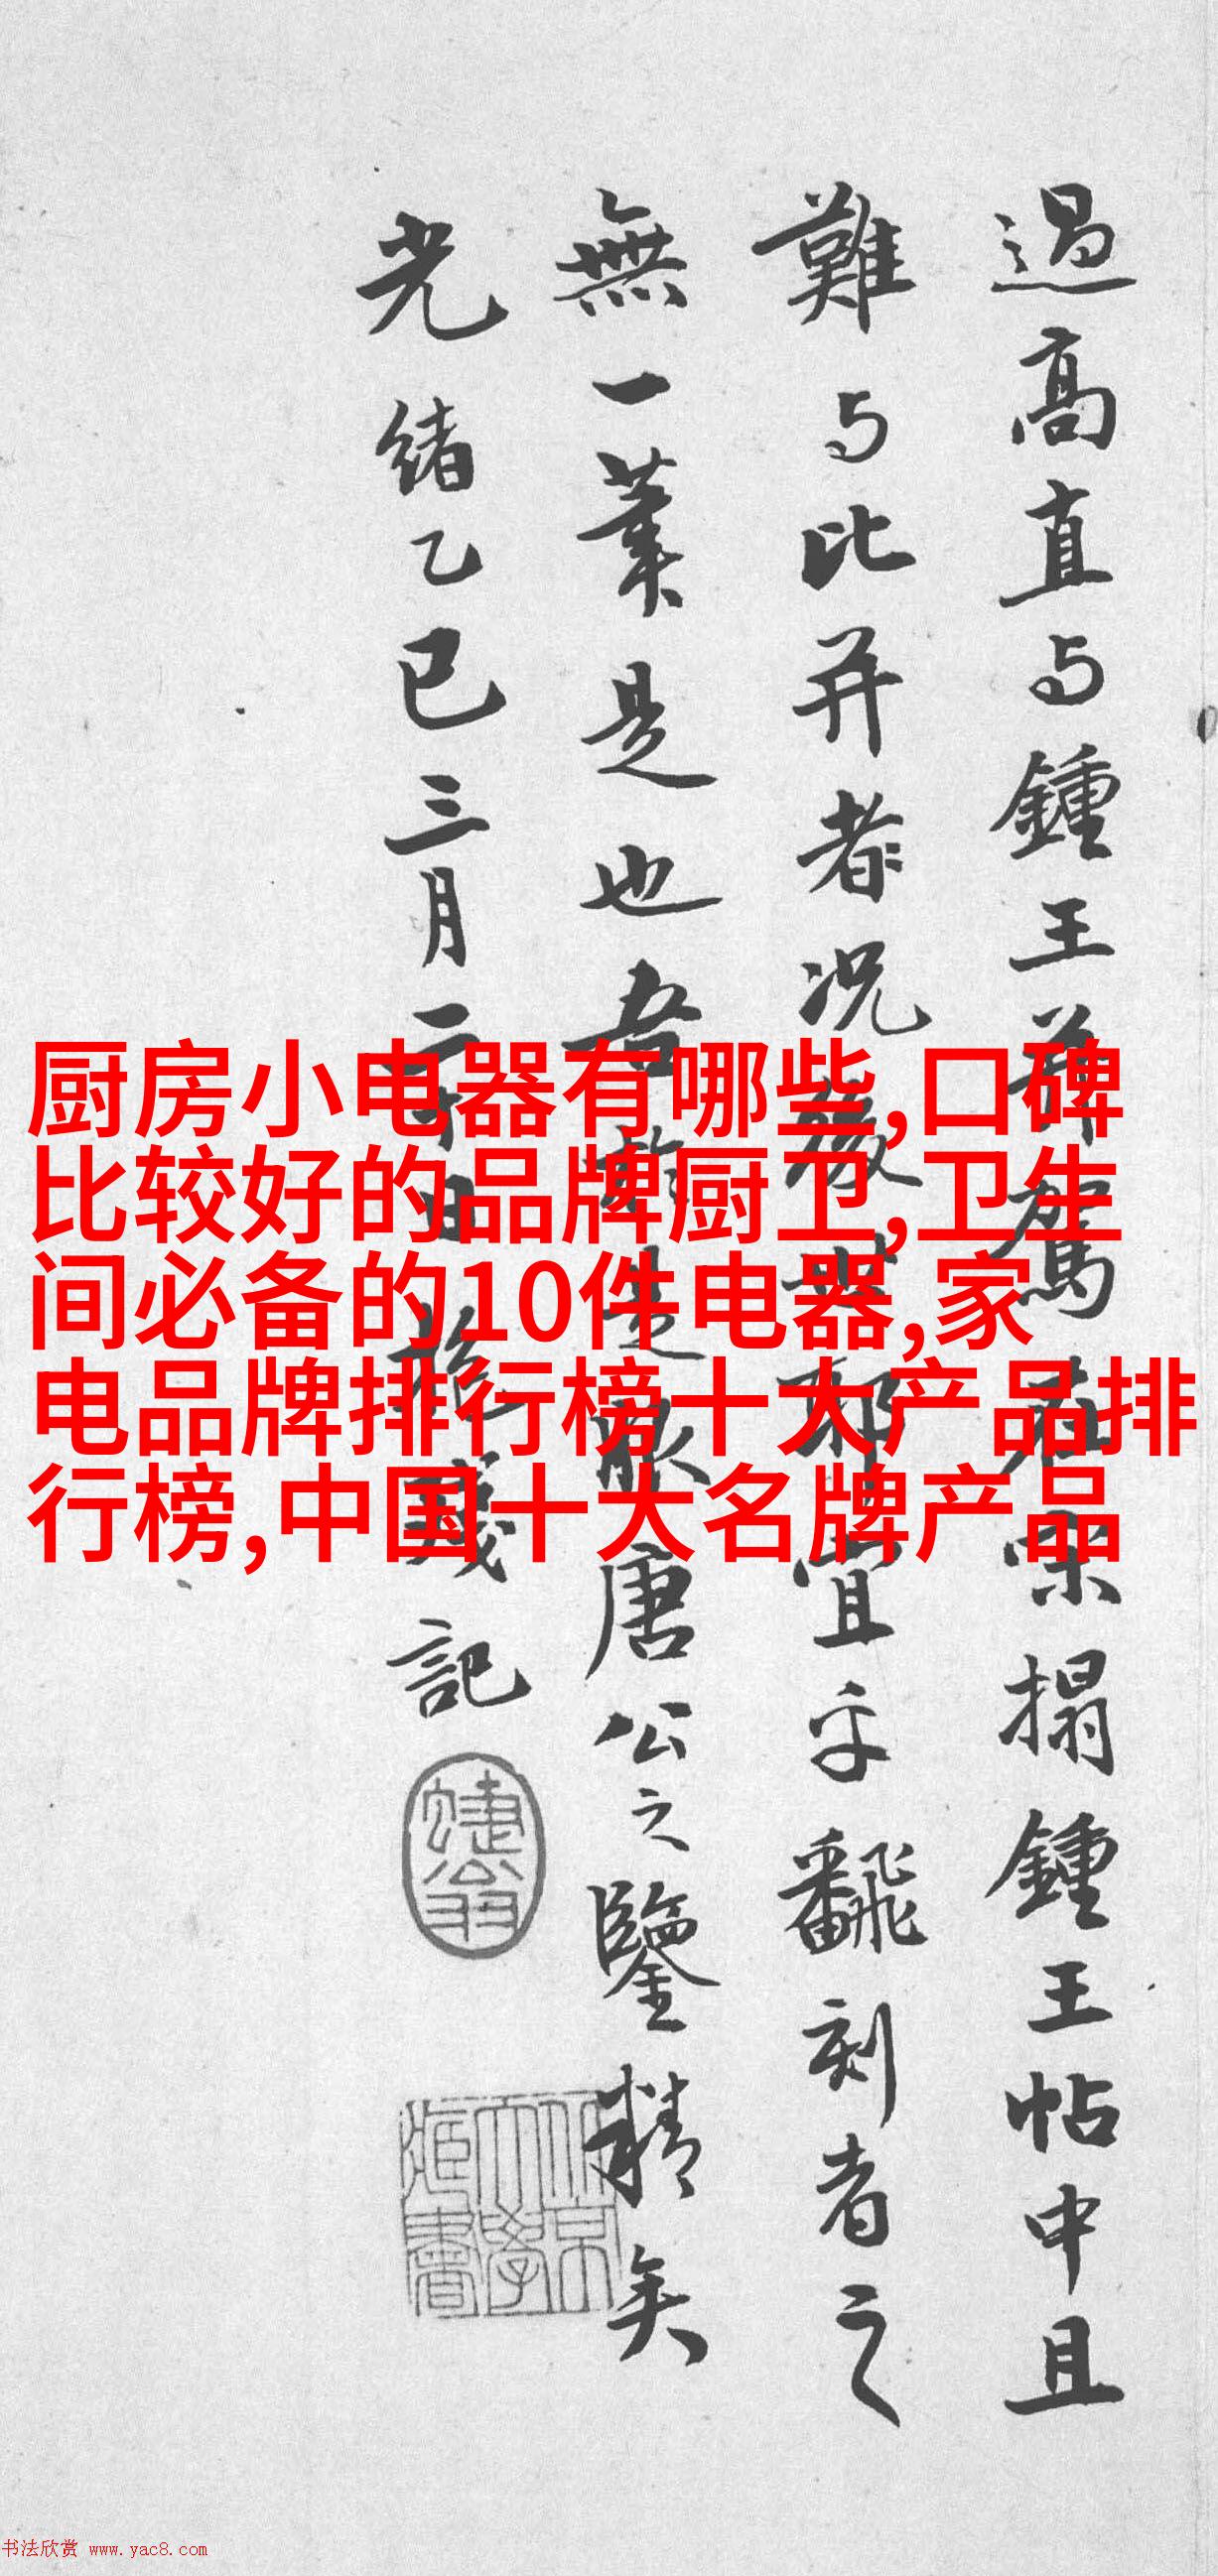 過高直与鍾王並駕若宋搨鍾王帖中且
難与比并者况後世耶宜乎翻刻者之
無一業是也吾於是服唐公之鑒精矣
光緒乙巳三月二十日
記
厨房小电器有哪些,口碑
比较好的品牌厨卫,卫生
间必备的10件电器,家
电品牌排行榜十大产品排
行榜,中国十大名牌产品
书法欣赏 www.yac8.com